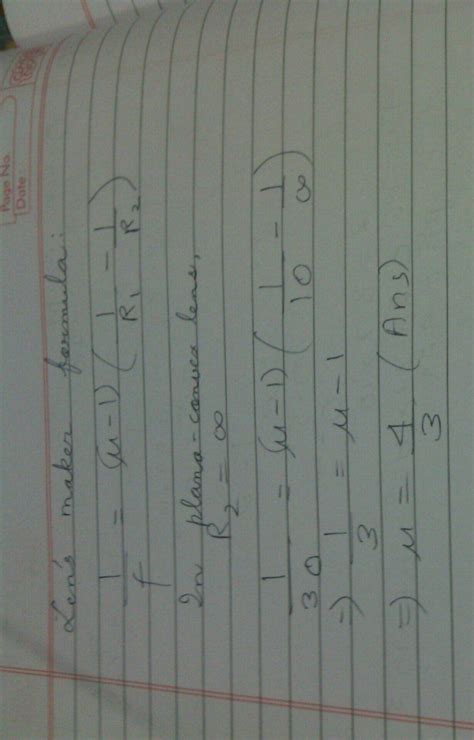 Page No.
Date:
Len's maker formula:
1/f = (μ-1) (1/R₁ - 1/R₂)
In plano-convex lens,
R₂ = ∞
1/30 = (μ-1) (1/10 - 1/∞)
=) 1/3 = μ-1
=) μ = 4/3 (Ans)